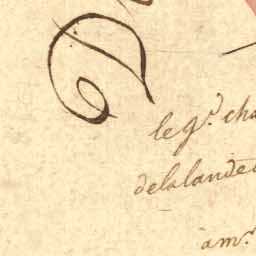 D
le gr. cha
delalande
a mr.